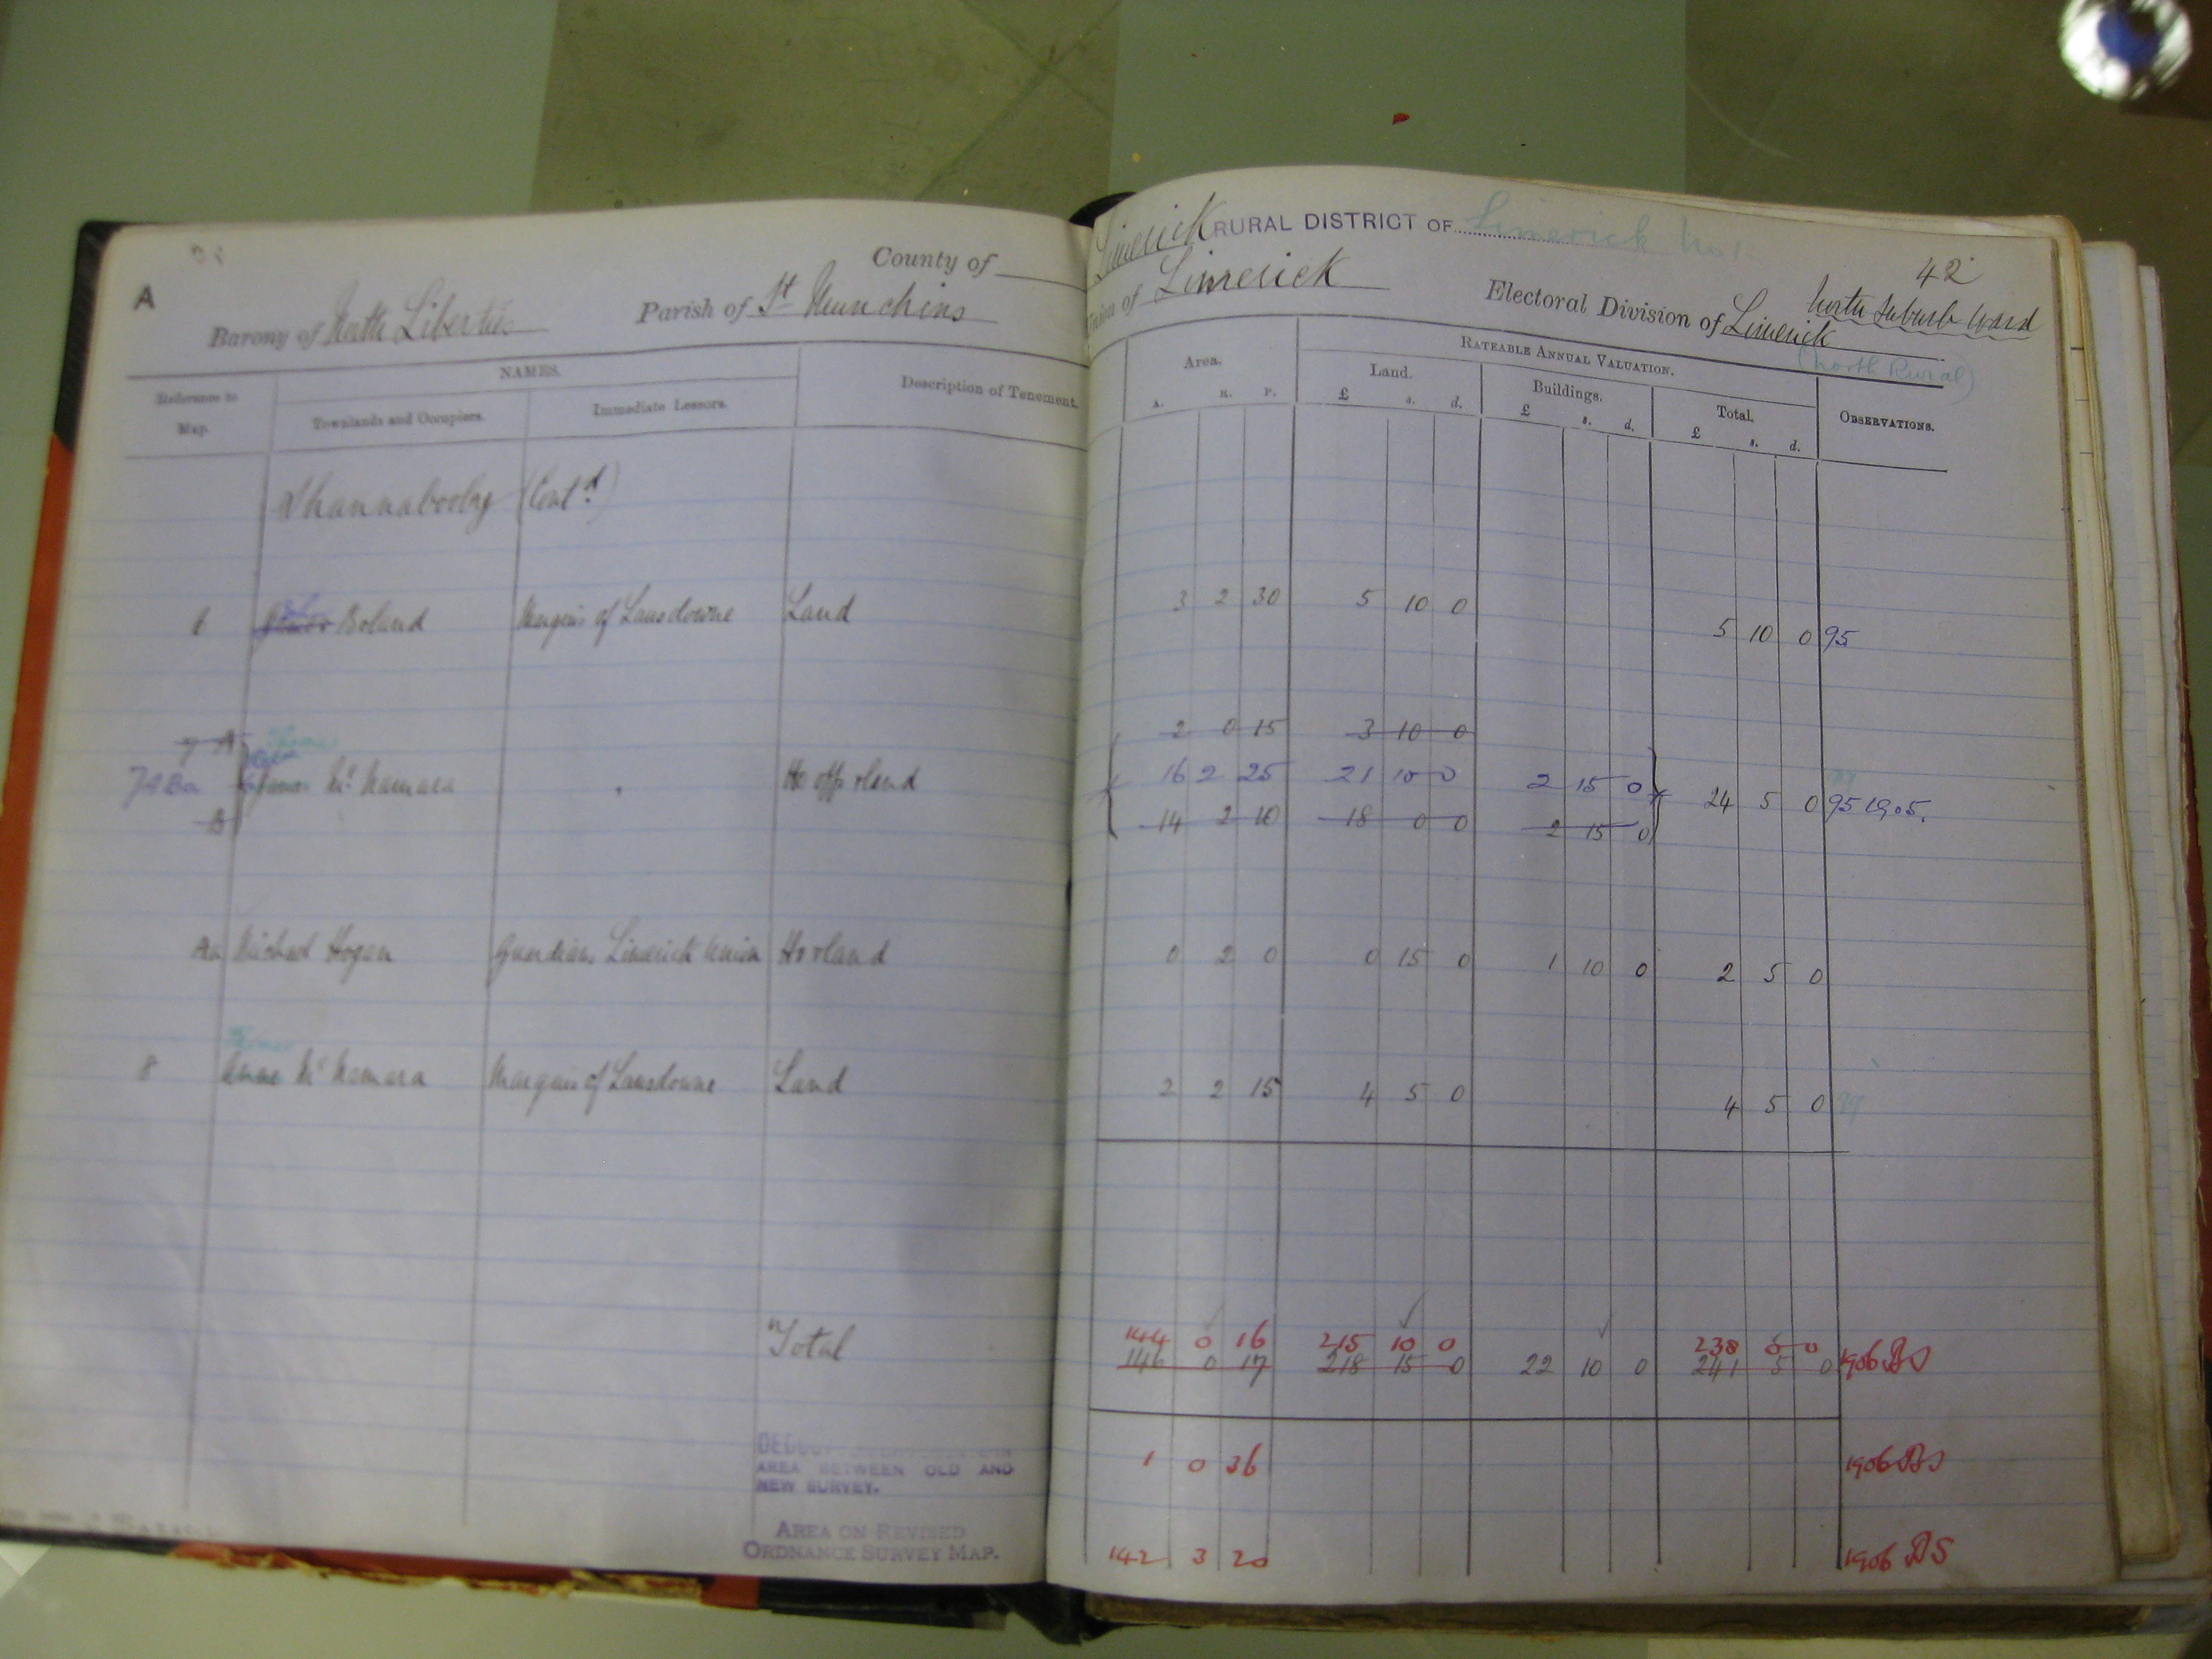 A
County of Limerick RURAL DISTRICT OF Limerick No 1
42
Barony of North Liberties Parish of St Munchins Union of Limerick Electoral Division of Limerick North Suburb Ward
(North Rural)
Reference to Map. NAMES. Description of Tenement. Area. RATEABLE ANNUAL VALUATION. OBSERVATIONS.
Townlands and Occupiers. Immediate Lessors. A. R. P. Land. Buildings. Total.
£ s. d. £ s. d. £ s. d.
Shannabooly (Contd)
6 Boland Marquis of Lansdowne Land 3 2 30 5 10 0 5 10 0 95
7 A 2 0 15 3 10 0
7ABa James McNamara " Ho offs & land 16 2 25 21 10 0 2 15 0 24 5 0 95 1905.
B 14 2 10 18 0 0 2 15 0
Michael Hogan Guardians Limerick Union Ho & land 0 2 0 0 15 0 1 10 0 2 5 0
8 Anne McNamara Marquis of Lansdowne Land 2 2 15 4 5 0 4 5 0 99
144 0 16 215 10 0 238 0 0
Total 146 0 17 218 15 0 22 10 0 241 5 0 1906
AREA BETWEEN OLD AND
NEW SURVEY.
1 0 36 1906
AREA ON REVISED
ORDNANCE SURVEY MAP.
142 3 20 1906